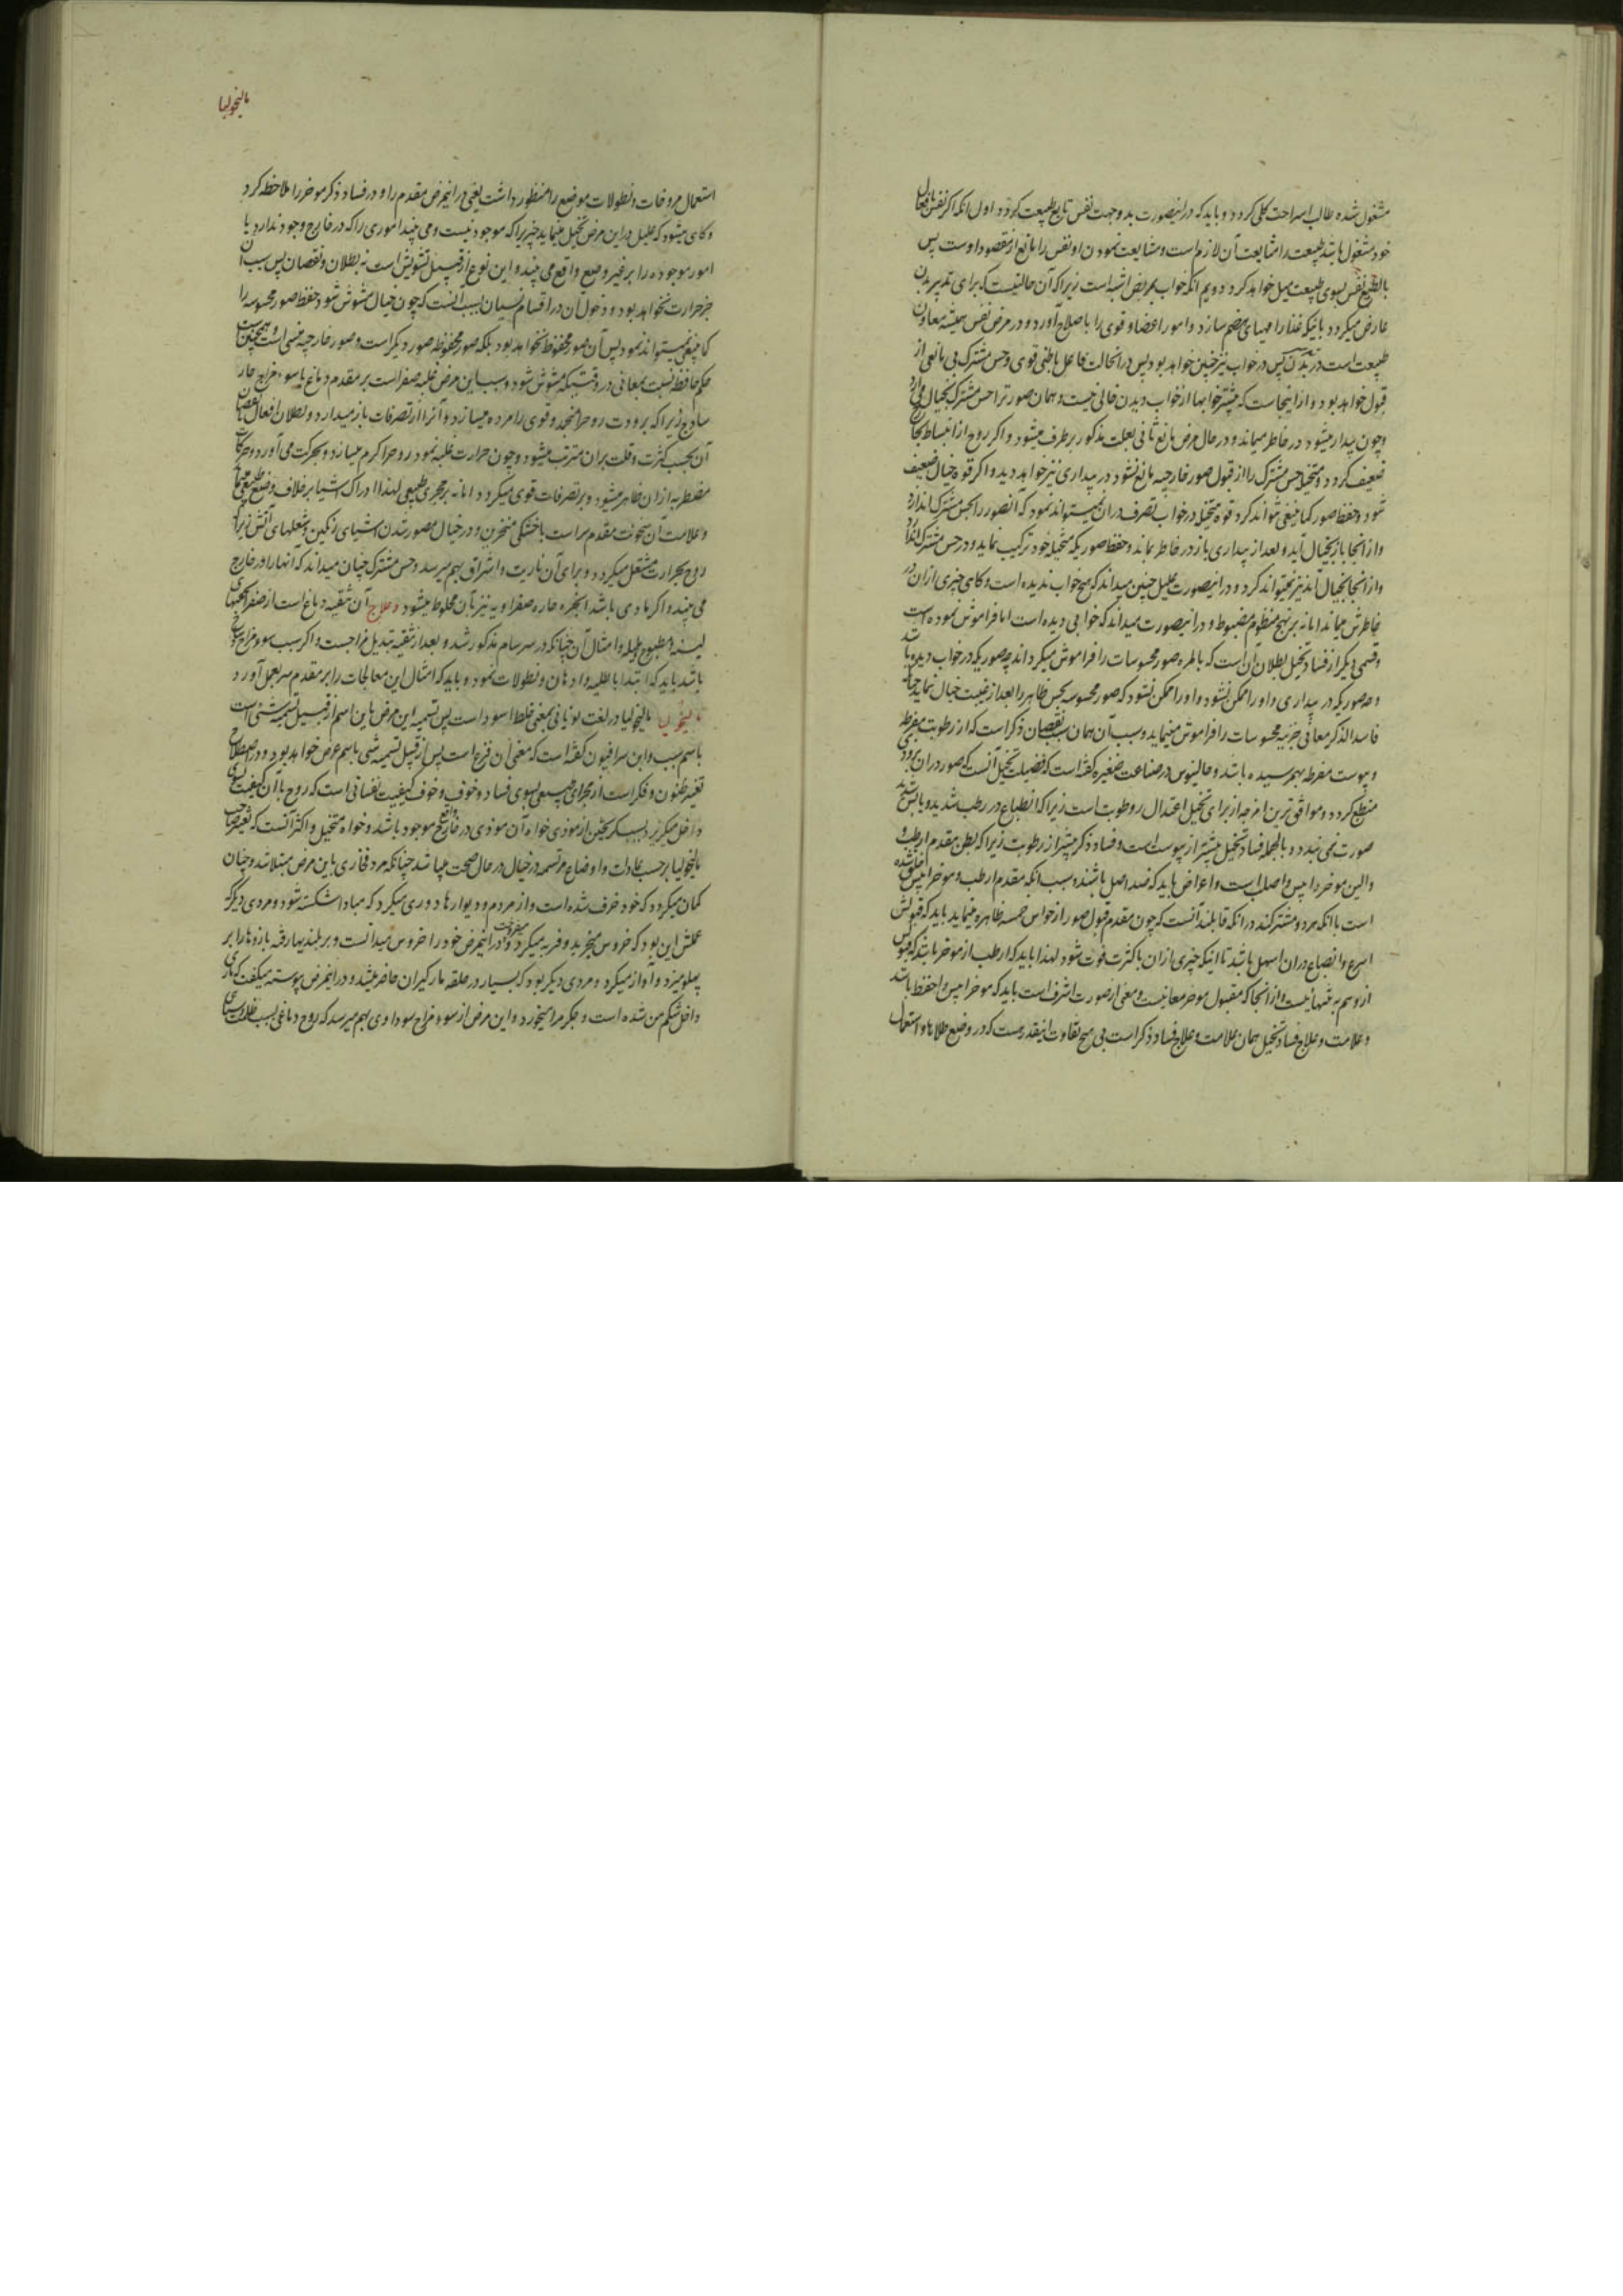 مشغول شده طالب استراحت کلی کردد و باید که درینصورت بدو جهت نفس تابع طبیعت کردد اول انکه اکر نفس بافعال
خود مشغول باشد طبیعت را مشایعت آن لازم است و مشایعت نمودن او نفس را مانع از مقصود اوست پس
بالطبع نفس بسوی طبیعت میل خواهد کرد دویم انکه خواب بمرض اشبه است زیرا که آن حالتیست که برای تدبیر بدن
عارض میکردد باینکه غذا را مهیای هضم سازد و امور اعضا و قوی را باصلاح آورد و در مرض نفس همیشه معاون
طبیعت است در تدبیر بدن پس در خواب نیز چنین خواهد بود پس در انحالت فاعل باطنی قوی و حس مشترک بی مانعی از
قبول خواهد بود و از اینجاست که بیشتر خوابها از خواب دیدن خالی نیست و همان صور تر احس مشترک بخیال می آرد
و چون بیدار میشود در خاطر میماند و در حال مرض مانع ثانی بعلت مذکور برطرف میشود و اکر روح از انبساط بخارج
ضعیف کردد و متخیله حس مشترک را از قبول صور خارجیه مانع نشود در بیداری نیز خواهد دید و اکر قوه خیال ضعیف
شود و حفظ صور کما ینبغی نتواند کرد قوه متخیله در خواب تصرف دران نمیتواند نمود که انصور را بحس مشترک اندازد
و از انجا باز بخیال آید و بعد از بیداری باز در خاطر بماند و حفظ صوریکه متخیله خود ترکیب نماید و در حس مشترک اندازد
و از انجا بخیال آید نیز نمیتواند کرد و درینصورت علیل چنین میداند که هیچ خواب ندیده است و کاهی چیزی ازان در
خاطرش میماند اما نه بر نهج منظوم مضبوط و درینصورت میداند که خوابی دیده است اما فراموش نموده است
و قسمی دیکر از فساد تخیل بطلان آن است که بالمره صور محسوسات را فراموش میکرداند چه صوریکه در خواب دیده باشد
و چه صوریکه در بیداری و او را ممکن نشود که صور محسوسه بحس ظاهر را بعد از غیبت خیال نماید چنانکه
فاسد الذکر معانی جزئیه محسوسات را فراموش مینماید و سبب آن همان سبب نقصان ذکر است که از رطوبت مفرطه
و یبوست مفرطه بهم رسیده باشد و جالینوس در صناعت صغیره کفته است که فضیلت تخیل آنست که صور دران بزودی
منطبع کردد و موافق ترین امزجه از برای تخیل اعتدال رطوبت است زیرا که انطباع در رطب شدید و یابس شدید
صورت نمی بندد و بالجمله فساد تخیل بیشتر از یبوست است و فساد ذکر بیشتر از رطوبت زیرا که بطن مقدم ارطب و
والین موخر دا یبس و اصلب است و اعراض باید که ضد اصل باشند و سبب انکه مقدم ارطب و موخر ایبس خلق شده
است با انکه هردو مشترکند در انکه قابلند آنست که چون مقدم قبول صور از حواس خمسه ظاهره مینماید باید که قبولش
اسرع و انصباغ دران اسهل باشد تا اینکه چیزی ازان با کثرت فوت نشود لهذا باید که ارطب از موخر باشد که قبولش
از وهم به تنهائیست و از انجا که مقبول موخر معانیست و معنی از صورت اشرف است باید که موخر ایبس و احفظ باشد
و علامت و علاج فساد تخیل همان علامت و علاج فساد ذکر است بی هیچ تفاوت اینقدر هست که در وضع طلاها و استعمال
مالیخولیا
استعمال مروخات و نطولات موضع را منظور داشت یعنی در اینمرض مقدم را و در فساد ذکر موخر را ملاحظه کرد
و کاهی میشود که علیل در این مرض تخیل مینماید چیزیرا که موجود نیست و می بیند اموری را که در خارج وجود ندارد یا
امور موجوده را بر غیر وضع واقع می بیند و این نوع از قبیل تشویش است نه بطلان و نقصان پس سبب آن
جز حرارت نخواهد بود و دخول آن در اقسام نسیان بسبب انست که چون خیال مشوش شود حفظ صور محسوسه را
کما ینبغی نمیتواند نمود پس آن صور محفوظ نخواهد بود بلکه صور محفوظه صور دیکر است و صور خارجیه منسی است و همچنین است
حکم حافظه نسبت بمعانی در وقتیکه مشوش شود و سبب این مرض غلبه صفراست بر مقدم دماغ یا سوء مزاج حار
ساذج زیرا که برودت روح را منجمد و قوی را مرده میسازد و آنرا از تصرفات باز میدارد و بطلان افعال یا نقصان
آن بحسب کثرت و قلت بران مترتب میشود و چون حرارت غلبه نمود روح را کرم میسازد و بحرکت می آورد و حرکات
مضطربه ازان ظاهر میشود و بر تصرفات قوی میکردد اما نه بر مجری طبیعی لهذا ادراک اشیا بر خلاف وضع طبیعی
و علامت آن سخونت مقدم سر است با خشکی منخرین و در خیال مصور شدن اشیای رنکین و شعلهای آتش زیرا که
روح بحرارت مشتعل میکردد و برای آن ناریت و اشراق بهم میرسد و حس مشترک چنان میداند که انها را در خارج
می بیند و اکر مادی باشد ابخره حاره صفراویه نیز بآن مخلوط میشود و علاج آن تنقیه دماغ است از صفرا
لینه و مطبوخ هلیله و امثال آن چنانکه در سرسام مذکور شد و بعد از تنقیه تبدیل مزاجست و اکر سبب سوء مزاج ساذج
باشد باید که ابتدا با طلیه و ادهان و نطولات نمود و باید که امثال این معالجات را بر مقدم سر بعمل آورد
مالیخولیا مالیخولیا در لغت یونانی بمعنی خلط اسود است پس تسمیه این مرض باین اسم از قبیل تسمیه شی است
باسم سبب و ابن سرافیون کفته است که معنی آن فزع است پس از قبیل تسمیه شی باسم عرض خواهد بود و در اصطلاح
تغیر ظنون و فکر است از مجرای طبیعی بسوی فساد و خوف و خوف کیفیت نفسانی است که روح با آن کیفیت بسوی
داخل میکریزد بسبب کریختن از موذی خواه آن موذی در خارج واقع موجود باشد و خواه متخیل و اکثر آنست که تغیر صاحب
مالیخولیا بر حسب عادات و اوضاع مرتسمه در خیال در حال صحت میباشد چنانکه مرد فخاری باین مرض مبتلا شد و چنان
کمان میکرد که خود خزف شده است و از مردم و دیوارها دوری میکرد که مبادا شکسته شود و مردی دیکر که
عملش این بود که خروس میخرید و فربه میکرد و میفروخت در اینمرض خود را خروس میدانست و بر بلندیها رفته بازوها را بر
پهلو میزد و آواز میکرد و مردی دیکر بود که بسیار در حلقه مارکیران حاضر میشد و در اینمرض پیوسته میکفت که ماری
داخل شکم من شده است و جکر مرا میخورد و این مرض از سوء مزاج سوداوی بهم میرسد که روح دماغی بسبب ظلمت سیاهی